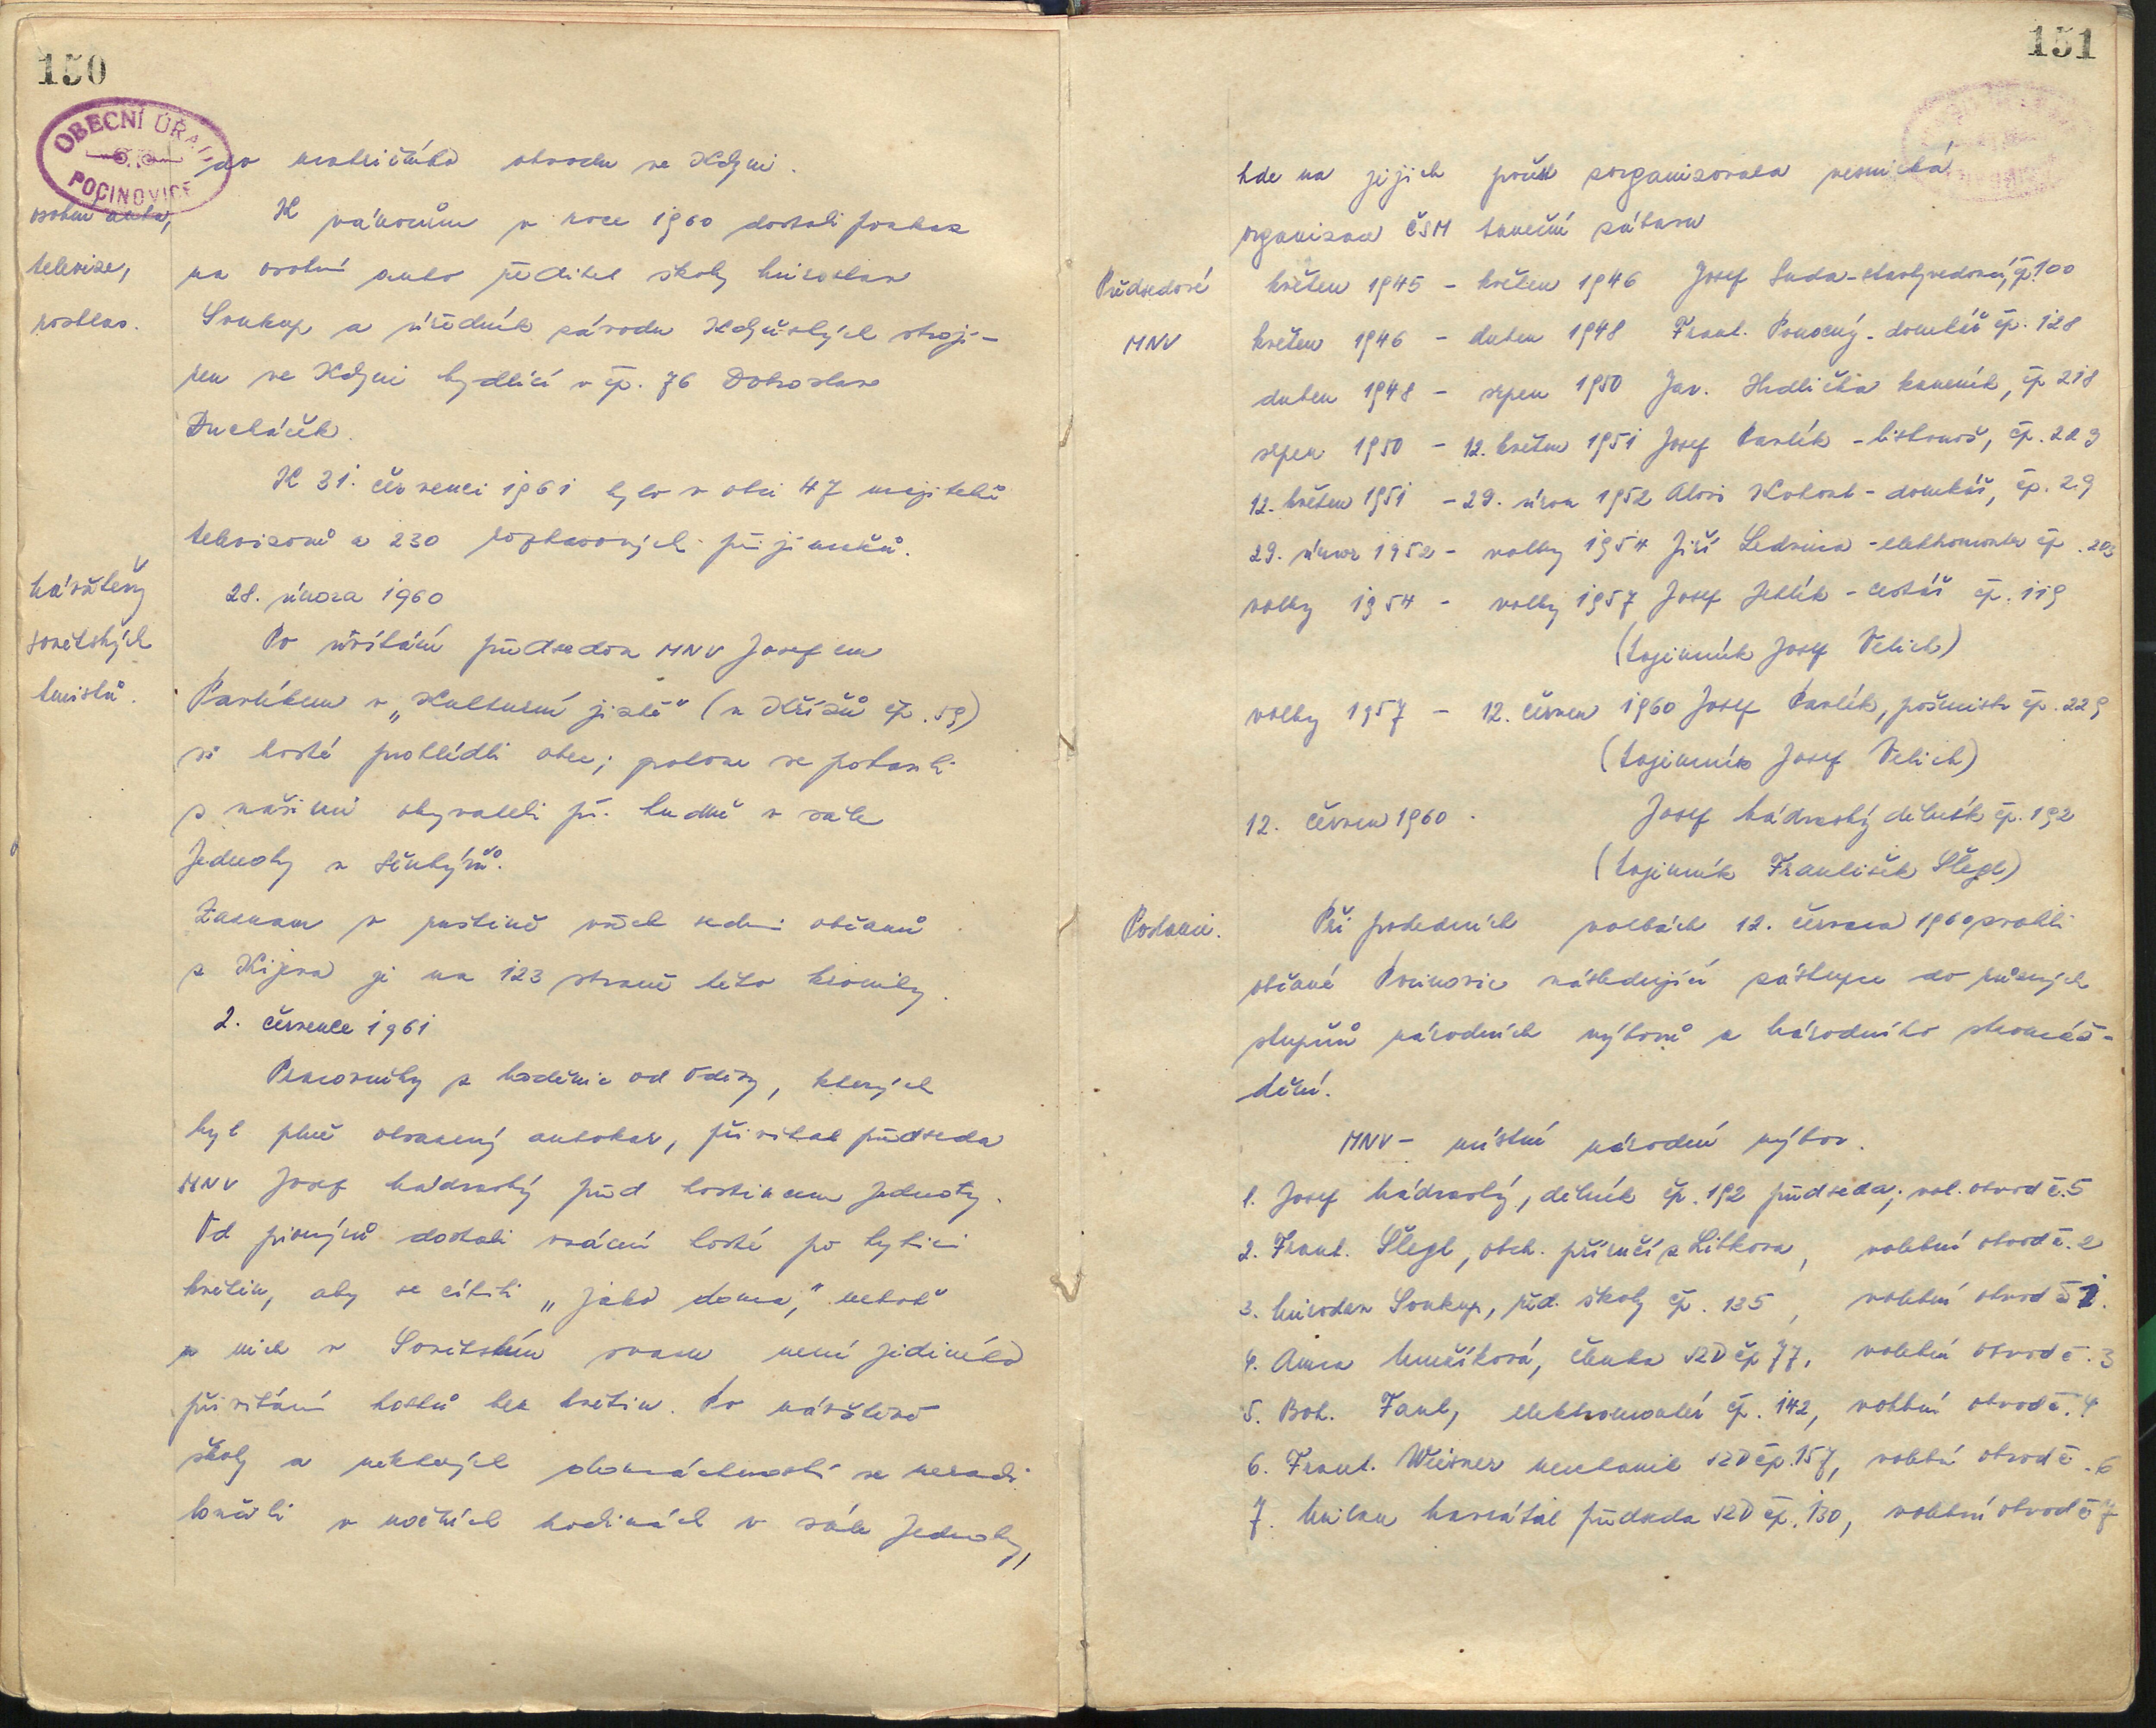 150
OBECNÍ ÚŘAD
POCINOVICE
do matričního obvodu ve Kdyni.
osobní auta,
K vánocům v roce 1960 dostali poukaz
televize,
na osobní auto ředitel školy Miroslav
rozhlas.
Soukup a úředník závodu Kdyňských strojí-
ren ve Kdyni bydlící v čp. 76 Dobroslav
Ducháček.
K 31. červenci 1961 bylo v obci 47 majitelů
televizorů a 230 rozhlasových přijímačů.
Návštěvy
28. února 1960
sovětských
Po uvítání předsedou MNV Josefem
turistů.
Pavlíkem v „Kulturní jizbě" (u Křížů čp. 59)
si hosté prohlédli obec; potom se pobavili
s našimi obyvateli při hudbě v sále
Jednoty u Seukýrů.
Záznam v ruštině všech sedmi občanů
z Kijeva je na 123 straně této kroniky.
2. července 1961
Pracovníky z loděnic od Oděsy, kterých
byl plně obsazený autokar, přivítal předseda
MNV Josef Nádraský před hostincem Jednoty.
Od pionýrů dostali vzácní hosté po kytici
květin, aby se cítili „jako doma," neboť
u nich v Sovětském svazu není jediného
přivítání hostů bez květin. Po návštěvě
školy a některých domácností se neradi
loučili v nočních hodinách v sále Jednoty,
151
kde na jejich počest zorganizovala vesnická
organizace ČSM taneční zábavu
Předsedové
květen 1945 - květen 1946 Josef Suda - starý vedoucí, čp. 100
MNV
květen 1946 - duben 1948 Frant. Ponocný - domkář čp. 128
duben 1948 - srpen 1950 Jar. Hrdlička kameník, čp 218
srpen 1950 - 12. květen 1951 Josef Pavlík - listonoš, čp. 229
12. květen 1951 - 29. únor 1952 Alois Kohout - domkář, čp. 29
29. únor 1952 - volby 1954 Jiří Ledvina - elektromontér čp. 203
volby 1954 - volby 1957 Josef Jehlík - cestář čp. 119
(tajemník Josef Velich)
volby 1957 - 12. červen 1960 Josef Pavlík, pošmistr čp. 229
(tajemník Josef Velich)
12. červen 1960. Josef Nádraský dělník čp. 192
(tajemník František Šlegl)
Poslanci.
Při posledních volbách 12. června 1960 zvolili
občané Pocinovic následující zástupce do různých
stupňů národních výborů a Národního shromáž-
dění.
MNV - místní národní výbor.
1. Josef Nádraský, dělník čp. 192 předseda; vol. obvod č. 5
2. Frant. Šlegl, obch. příručí z Libkova, volební obvod č. 2
3. Miroslav Soukup, řed. školy čp. 135, volební obvod č 1.
4. Anna Kmečíková, členka JZD čp 77, volební obvod č. 3
5. Boh. Faul, elektromontér čp. 142, volební obvod č. 4
6. Frant. Wiesner mechanik JZD čp. 157, volební obvod č. 6
7. Milan předseda JZD čp. 130, volební obvod č 7